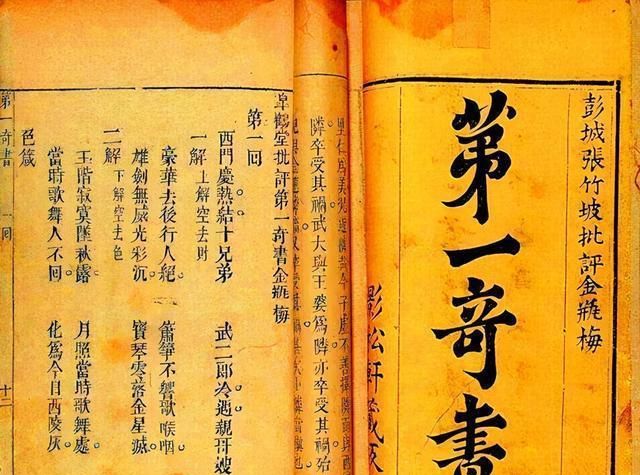 彭城張竹坡批評金瓶梅
苐一奇書
影松軒藏
隣卒受其禍武大與王婆爲隣亦卒受其禍殆
皐鶴堂批評第一奇書金瓶梅
第一回
西門慶熱結十兄弟　武二郎冷遇親哥嫂
一解　上解空去財
豪華去後行人絕。　簫箏不響歌喉咽
雄劍無威光彩沉　寶琴零落金星滅。
二解　下解空去色
玉階寂寞墜秋露。　月照當時歌舞處
當時歌舞人不回。　化爲今日西陵灰
色箴
第一奇書　一回　十二